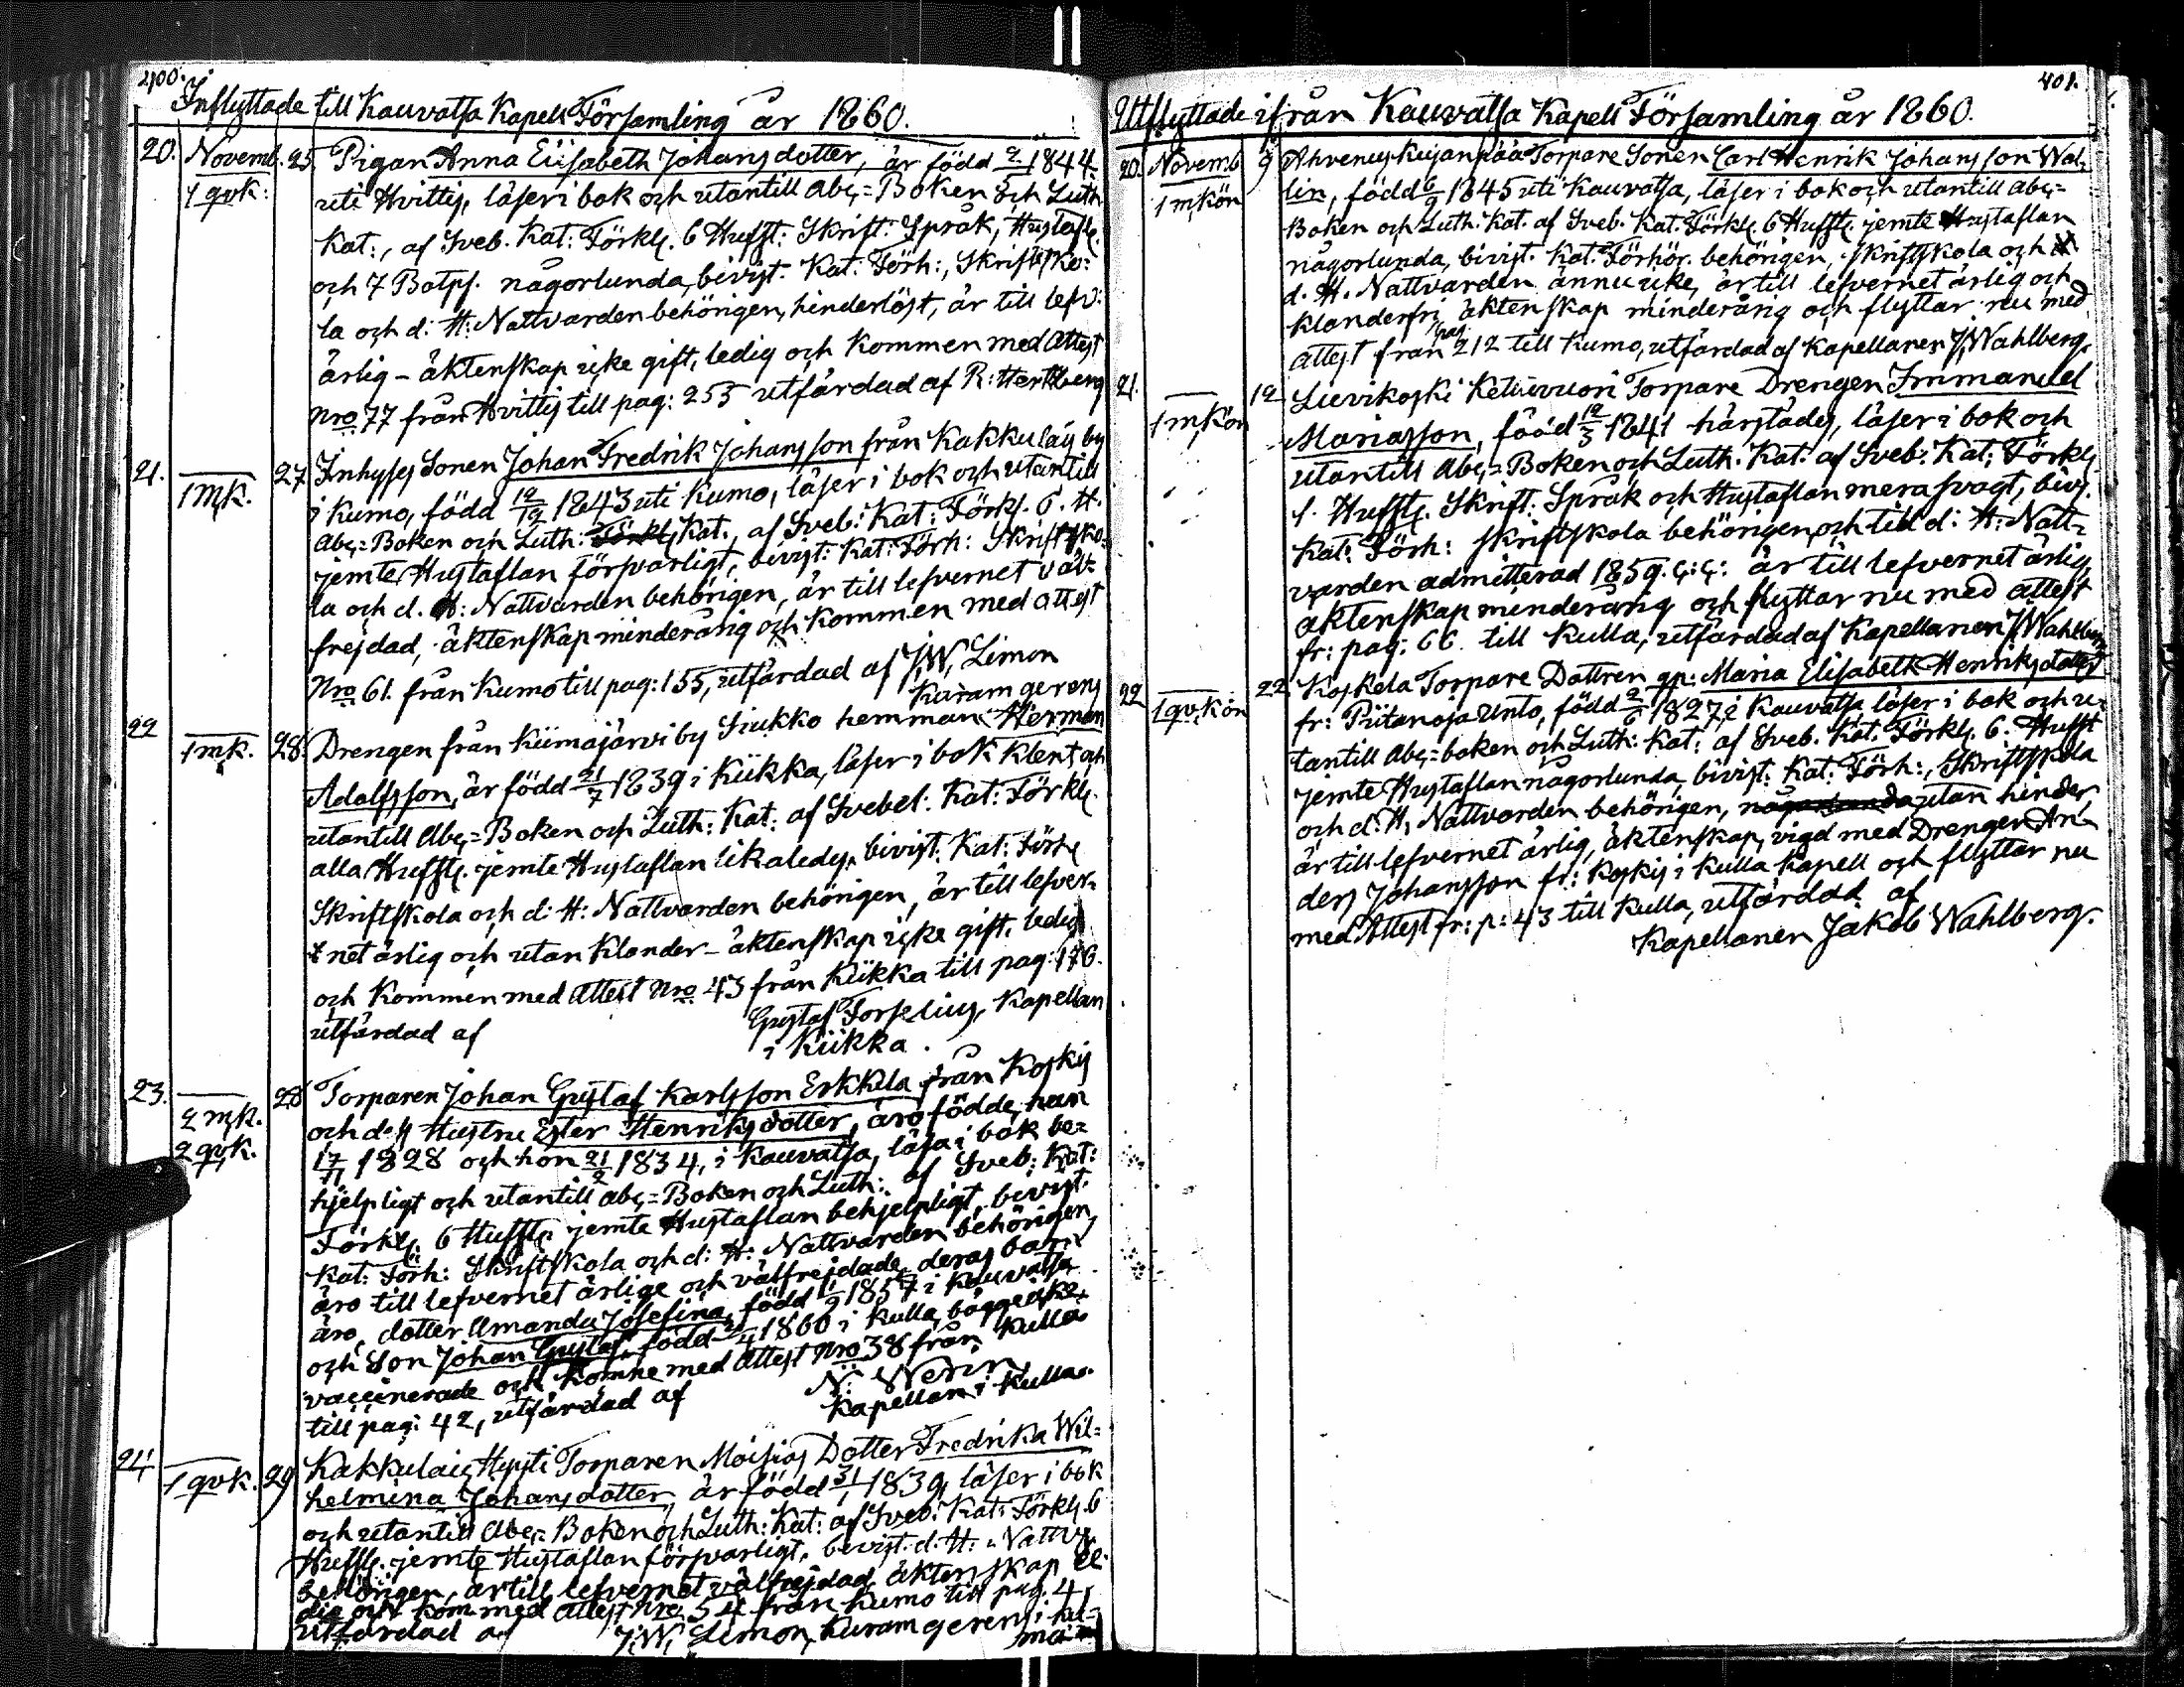 400.
Inflyttade till Kauvatsa Kapell Församling år 1860.
20. Novemb. 25. Pigan Anna Elisabeth Johansdotter, är född 2/5 1844
1 qvk: uti Hvittis, läser i bok och utantill Abc=Boken och Luth
Kat:, af Sveb. Kat: Förkl. 6 Hufst: Skrift: Språk, Hustafl.
och 7 Botps. någorlunda, bivist. Kat: Förh:, Skriftsko=
la och d: H: Nattvarden behörigen, hinderlöst, är till lefv:
ärlig – äktenskap icke gift, ledig och kommen med Attest
Nro 77 från Hvittis till pag: 253 utfärdad af R: Hertzberg
21. 1 mk. 27 Inhyses Sonen Johan Fredrik Johansson från Kakkulais by
i Kumo, född 12/12 1843 uti Kumo, läser i bok och utantill
Abc=Boken och Luth: Förkl Kat., af Sveb: Kat: Förkl. 6. H.
jemte Hustaflan försvarligt, bivist: Kat: Förh: Skriftsko=
la och d. H: Nattvarden behörigen, är till lefvernet väl=
frejdad, äktenskap minderårig och kommen med attest
Nro 61. från Kumo till pag: 155, utfärdad af J.W. Limon
Kuram gerens
22 1 mk. 28. Drengen från Kiimajärvi by Siukko hemman Herman
Adolfsson, är född 21/7 1839 i Kiikka, läser i bok klent och
utantill Abc=Boken och Luth: Kat: af Svebel: Kat: Förkl.
alla Hufst. jemte Hustaflan likaledes, bivist. Kat: Förh
Skriftskola och d: H: Nattvarden behörigen, är till lefver=
net ärlig och utan klander – äktenskap icke gift, ledig
och kommen med Attest Nro 43 från Kiikka till pag: 176.
utfärdad af Gustaf Forselius, Kapellan
i Kiikka.
23. 2 mk. 28 Torparen Johan Gustaf Karlsson Erkkila från Koskis
2 qvk. och dess Hustru Ester Henriksdotter, äro födde, han
17/11 1828 och hon 21/2 1834, i Kauvatsa, läsa i bok be=
hjelpligt och utantill abc=Boken och Luth: af Sveb: Kat:
Förkl: 6 Hufst: jemte Hustaflan behjelpligt, bevist.
Kat: Förh: Skriftskola och d: H: Nattvarden behörigen,
äro till lefvernet ärlige och välfrejdade, deras barn
äro, dotter Amanda Josefina, född 1/9 1857 i Kauvatsa
och Son Johan Gustaf, född /4 1860 i Kulla, bägge icke
vaccinerade och komne med Attest Nro 38 från Kulla
till pag: 42, utfärdad af N: Werin
Kapellan i Kulla.
24. 1 qvk. 29 Kakkulais Hyysti Torparen Moisios Dotter Fredrika Wil=
helmina Johansdotter, är född 31/1 1839, läser i bok
och utantill Abc=Boken och Luth: Kat: af Sveb: Kat: Förkl. 6
Hufst. jemte Hustaflan försvarligt, bevist. d: H: Nattv.
behörigen, är till lefvernet välfrejdad, äktenskap le=
dig och kom med attest Nro 54 från Kumo till pag. 4
utfärdad af J.W. Limon, Kuram gerens i Ku=
mo
401.
Utflyttade ifrån Kauvatsa Kapell Församling år 1860.
20. Novemb 9 Ahvenus Kujanpää Torpare Sonen Carl Henrik Johansson Wal=
1 mkön lin, född 6/9 1845 uti Kauvatsa, läser i bok och utantill abc=
Boken och Luth. Kat. af Sveb. Kat. Förkl. 6 Hufst. jemte Hustaflan
någorlunda, bivist. Kat. Förhör. behörigen, skriftskola och
d. H. Nattvarden ännu icke, är till lefvernet ärlig och
klanderfri, äktenskap minderårig och flyttar nu med
attest från pag 212 till Kumo, utfärdad af Kapellanen J. Wahlberg.
21. 1 mkön 12 Lievikoski Ketuvuori Torpare Drengen Immanuel
Mariasson, född 12/3 1841 härstädes, läser i bok och
utantill Abc=Boken och Luth. Kat. af Sveb. Kat. Förkl
6. Hufst. Skrift. Språk och Hustaflan mera svagt, biv.
Kat: Förh: skriftskola behörigen och till d: H: Natt=
varden admitterad 1859. är till lefvernet ärlig,
äktenskap minderårig och flyttar nu med attest
fr: pag: 66. till Kulla, utfärdad af Kapellanen J. Wahlberg
22 1 qvkön 22 Koskela Torpare Dottren Maria Elisabeth Henriksdotter
fr: Piitanoja Unto, född 2/6 1827, i Kauvatsa läser i bok och u=
tantill abc=boken och Luth: Kat: af Sveb. Kat: Förkl. 6. Hufst
jemte Hustaflan någorlunda, bivist: Kat: Förh:, Skriftskola
och d: H. Nattvarden behörigen, någorlunda utan hinder,
är till lefvernet ärlig, äktenskap, vigd med Drengen An=
ders Johansson fr: Koskis i Kulla Kapell och flyttar nu
med Attest fr: p: 43 till Kulla, utfärdad af
Kapellanen Jakob Wahlberg.